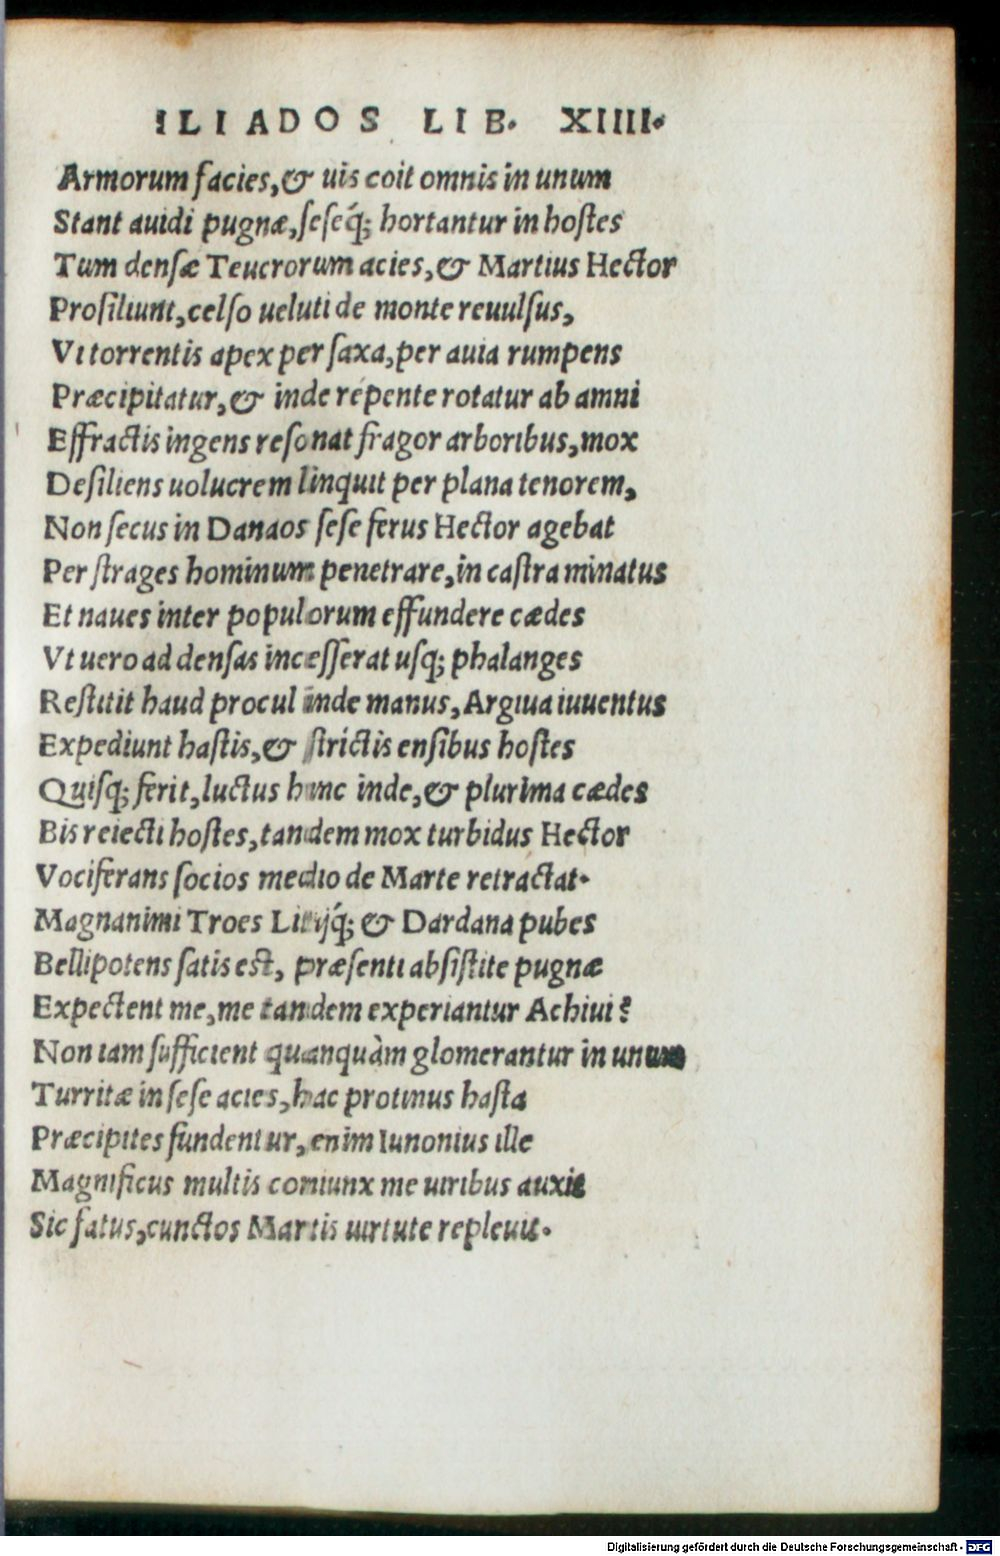 ILIADOS LIB. XIIII.
Armorum facies, & uis coit omnis in unum
Stant auidi pugnæ, ſeſeq́; hortantur in hoſtes
Tum denſæ Teucrorum acies, & Martius Hector
Proſiliunt, celſo ueluti de monte reuulſus,
Vt torrentis apex per ſaxa, per auia rumpens
Præcipitatur, & inde repente rotatur ab amni
Effractis ingens reſonat fragor arboribus, mox
Deſiliens uolucrem linquit per plana tenorem,
Non ſecus in Danaos ſeſe ferus Hector agebat
Per ſtrages hominum penetrare, in caſtra minatus
Et naues inter populorum effundere cædes
Vt uero ad denſas inceſſerat uſq; phalanges
Reſtitit haud procul inde manus, Argiua iuuentus
Expediunt haſtis, & ſtrictis enſibus hoſtes
Quiſq; ferit, luctus hinc inde, & plurima cædes
Bis reiecti hoſtes, tandem mox turbidus Hector
Vociferans ſocios medio de Marte retractat.
Magnanimi Troes Litijq́; & Dardana pubes
Bellipotens ſatis eſt, præſenti abſiſtite pugnæ
Expectent me, me tandem experiantur Achiui?
Non iam ſufficient quanquàm glomerantur in unum
Turritæ in ſeſe acies, hac protinus haſta
Præcipites fundentur, enim Iunonius ille
Magnificus multis coniunx me uiribus auxit
Sic fatus, cunctos Martis uirtute repleuit.
Digitalisierung gefördert durch die Deutsche Forschungsgemeinschaft - DFG